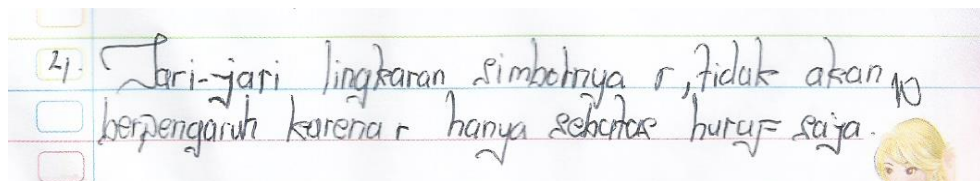 2). Jari-jari lingkaran simbolnya r, tidak akan 10
berpengaruh karena r hanya sebatas huruf saja.